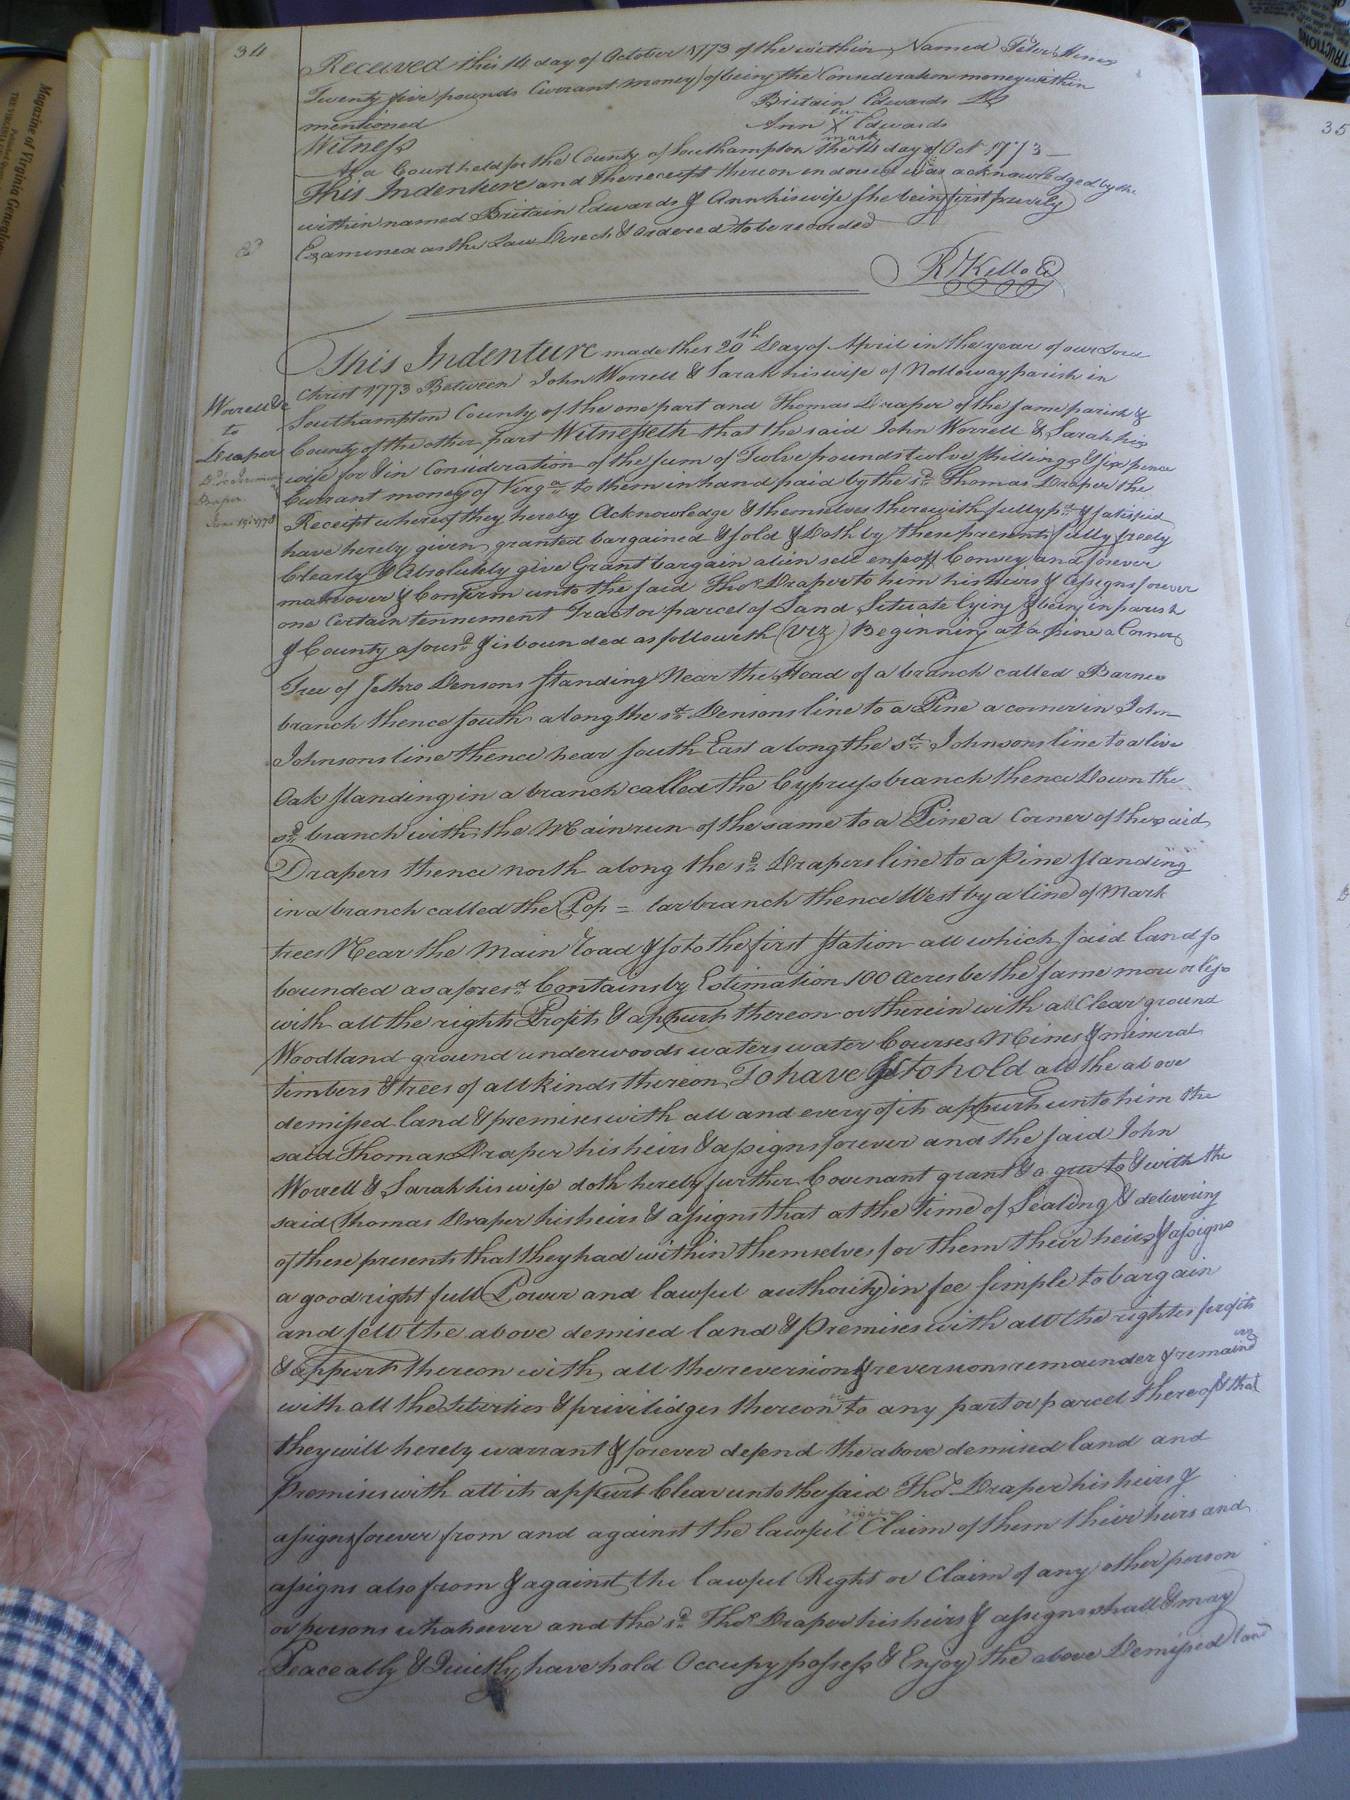 34
Received this 14 day of October 1773 of the within Named Peter Hines
Twenty five pounds Currant money of being the Consideration money within
mentioned
Britain Edwards LS
Witness
Ann X Edwards
her
mark
At a Court held for the County of Southampton the 14 day of Oct. 1773
This Indenture and the receipt thereon endorsed was acknowledged by the
within named Britain Edwards & Ann his wife she being first privily
Examined as the Law Directs & ordered to be recorded
R Kello
This Indenture made this 20th Day of April in the year of our Lord
Christ 1773 Between John Worrell & Sarah his wife of Nottoway parish in
Worrell &c
to
Draper
June 19: 1778
Southampton County of the one part and Thomas Draper of the same parish &
County of the other part Witnesseth that the said John Worrell & Sarah his
wife for & in Consideration of the sum of Twelve pounds twelve shillings & six pence
Currant money of Virga to them in hand paid by the sd Thomas Draper the
Receipt whereof they hereby Acknowledge & themselves therewith fully pd & satisfied
have hereby given granted bargained & sold & Doth by these presents fully freely
Clearly & Absolutely give Grant bargain alien sell enfeoff Convey and forever
make over & Confirm unto the said Thos Draper to him his heirs & assigns forever
one Certain tennement Tract or parcel of Land Situate lying & being in parish
& County aforesd & is bounded as followeth (Viz) Beginning at a pine a Corner
Tree of Jethro Densons standing Near the Head of a branch called Barnes
branch thence South along the sd Densons line to a Pine a corner in John
Johnsons line thence near South East along the sd Johnsons line to a live
Oak standing in a branch called the Cypruss branch thence Down the
sd branch with the Main run of the same to a Pine a Corner of the said
Drapers thence north along the sd Drapers line to a Pine standing
in a branch called the Pop = lar branch thence West by a line of Mark
trees Near the Main road & so to the first station all which said land so
bounded as aforesd Contains by Estimation 100 acres be the same more or less
with all the rights Profits & appurt thereon or therein with all Clear ground
Woodland ground underwoods waters water Courses Mines & mineral
timbers & trees of all kinds thereon To have & to hold all the above
demised land & premises with all and every of its appurts unto him the
said Thomas Draper his heirs & assigns forever and the said John
Worrell & Sarah his wife doth hereby further Covenant grant & agree to & with the
said Thomas Draper his heirs & assigns that at the time of Sealing & delivering
of these presents that they had within themselves for them their heirs & assigns
a good right full Power and lawful authority in fee simple to bargain
and sell the above demised land & Premises with all the rights profits
& appurt thereon with all the reversion & reversions remainder & remaind
ers
with all the Liberties & priviledges thereon to any part or parcel thereof & that
they will hereby warrant & forever defend the above demised land and
Premises with all its appurt Clear unto the said Thos Draper his heirs &
assigns forever from and against the lawful Claim of them their heirs and
assigns also from & against the lawful Right or Claim of any other person
or persons whatsoever and the sd Thos Draper his heirs & assigns shall & may
Peaceably & Quietly have hold Occupy possess & Enjoy the above Demised land
35
Magazine of Virginia Geneal